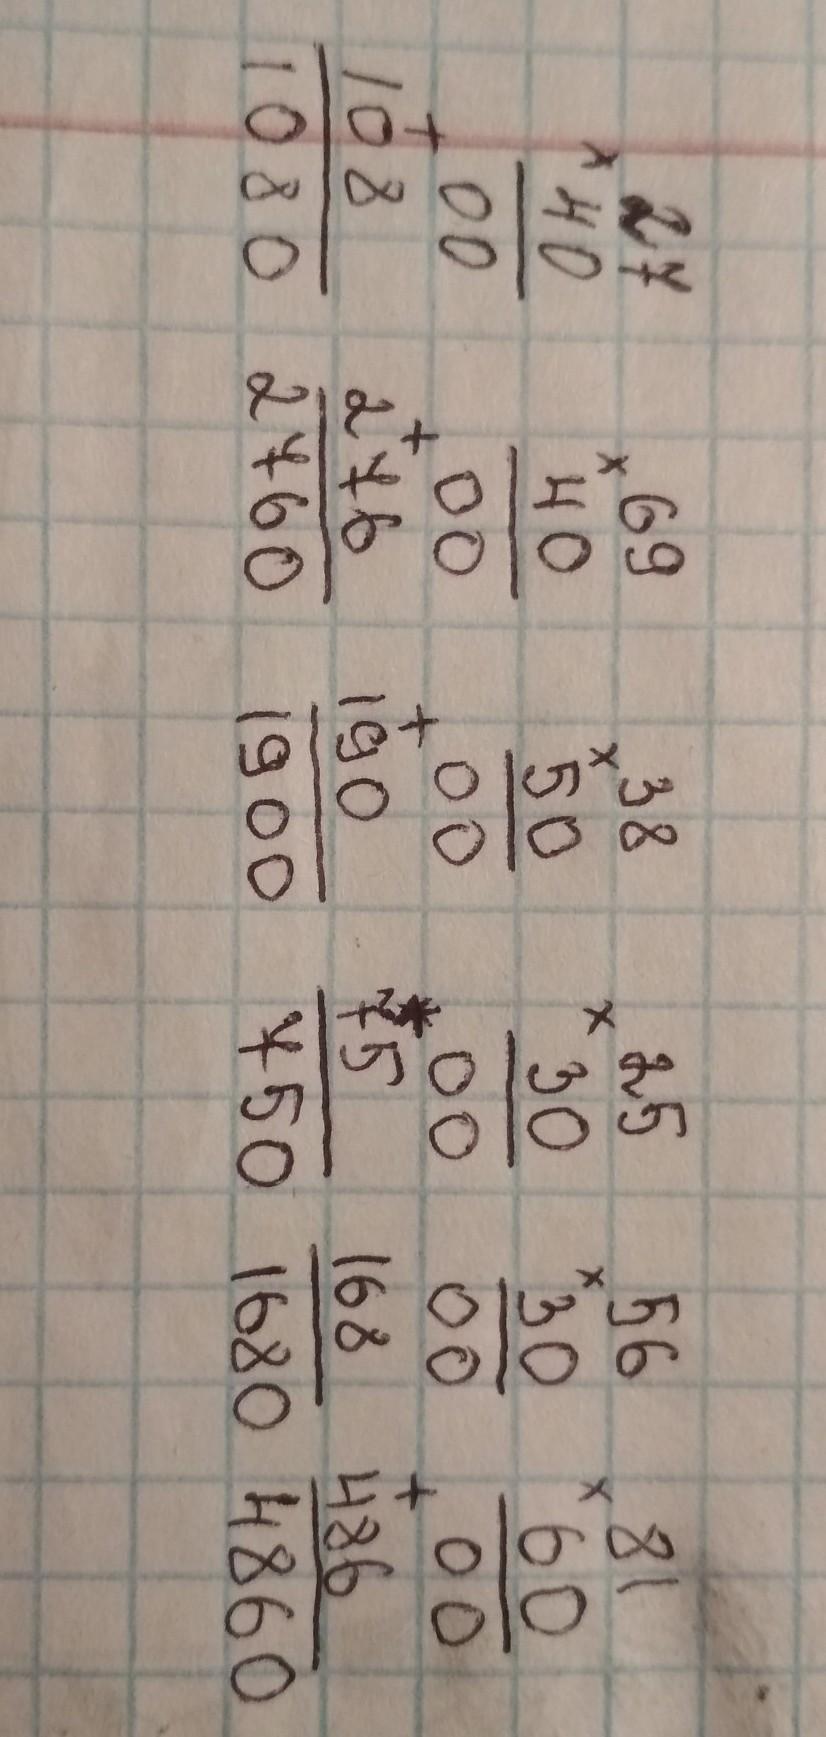 27 69 38 25 56 81
×40 ×40 ×50 ×30 ×30 ×60
00 00 00 00 00 00
+108 +276 +190 75 168 +486
1080 2760 1900 750 1680 4860